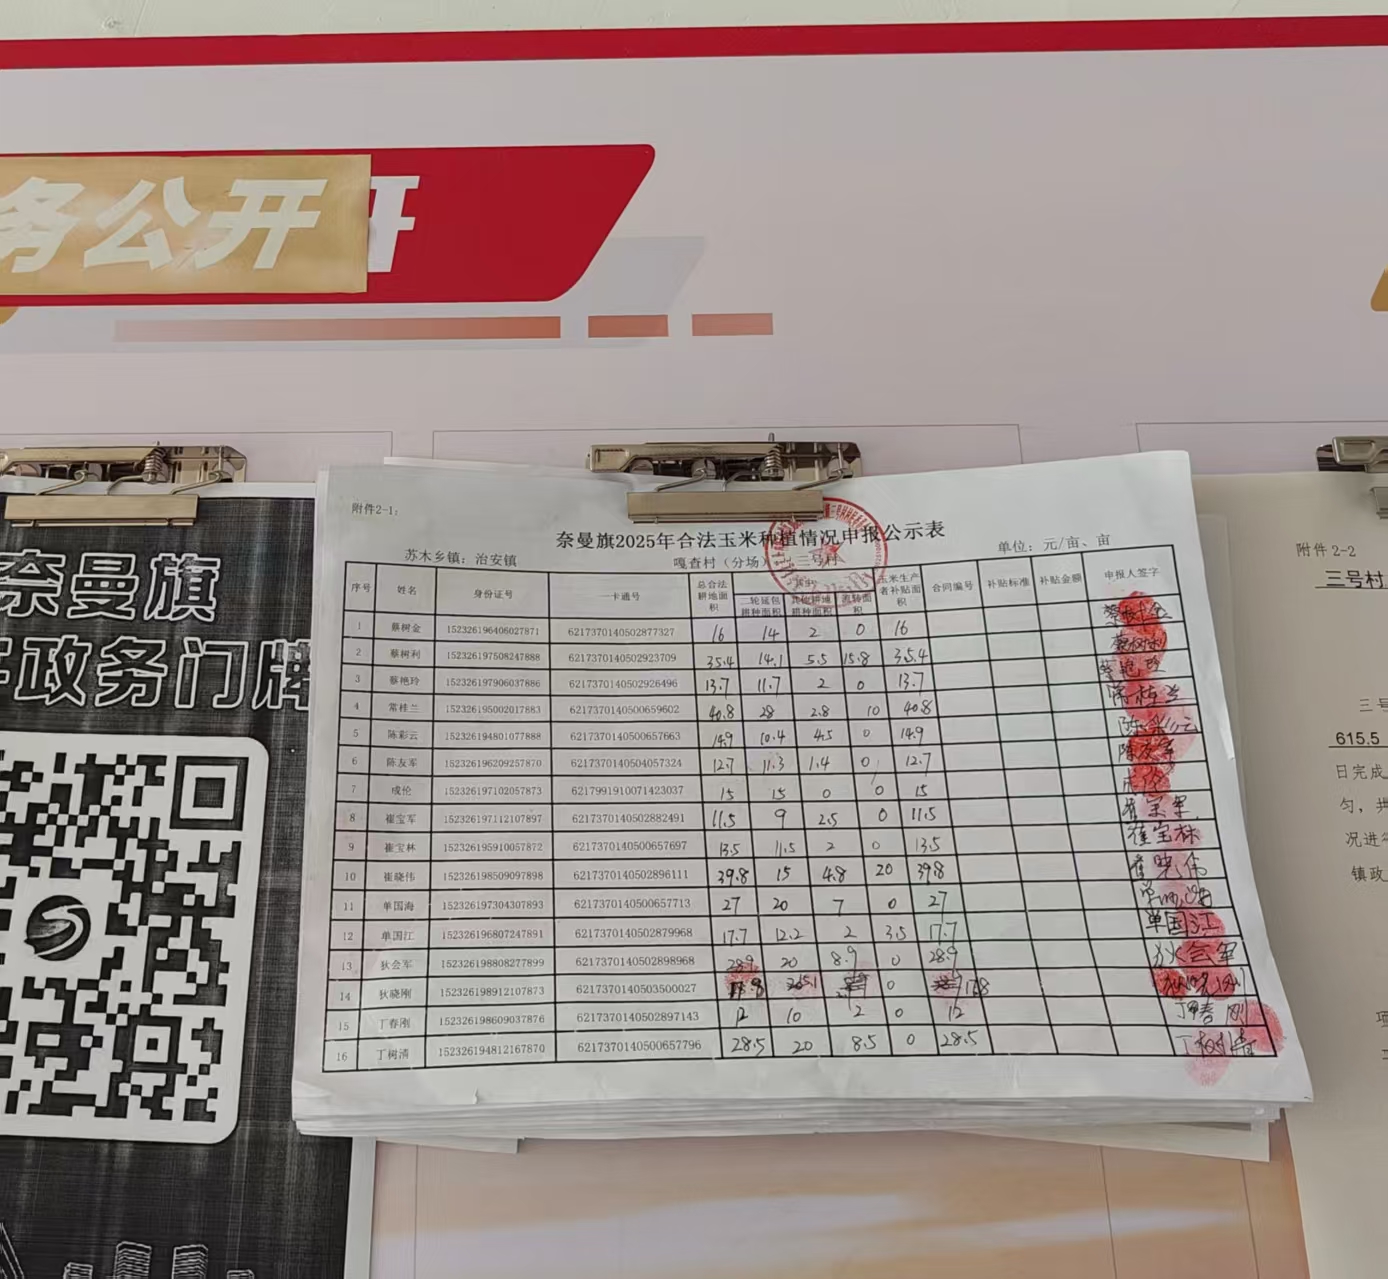 务公开
开
奈曼旗
政务门牌
附件2-1:
奈曼旗2025年合法玉米种植情况申报公示表
苏木乡镇：治安镇 嘎查村（分场） 三号村 单位：元/亩、亩
序号 姓名 身份证号 一卡通号 总合法耕地面积 其中 二轮延包耕种面积 其他耕地耕种面积 流转面积 玉米生产者补贴面积 合同编号 补贴标准 补贴金额 申报人签字
1 蔡树金 152326196406027871 6217370140502877327 16 14 2 0 16
2 蔡树利 152326197508247888 6217370140502923709 35.4 14.1 5.5 15.8 35.4
3 蔡艳玲 152326197906037886 6217370140502926496 13.7 11.7 2 0 13.7 蔡艳玲
4 常桂兰 152326195002017883 6217370140500659602 40.8 28 2.8 10 40.8 常桂兰
5 陈彩云 152326194801077888 6217370140500657663 14.9 10.4 4.5 0 14.9 陈彩云
6 陈友军 152326196209257870 6217370140504057324 12.7 11.3 1.4 0 12.7 陈友军
7 成伦 152326197102057873 6217991910071423037 15 15 0 0 15
8 崔宝军 152326197112107897 6217370140502882491 11.5 9 2.5 0 11.5 崔宝军
9 崔宝林 152326195910057872 6217370140500657697 13.5 11.5 2 0 13.5 崔宝林
10 崔晓伟 152326198509097898 6217370140502896111 39.8 15 4.8 20 39.8 崔晓伟
11 单国海 152326197304307893 6217370140500657713 27 20 7 0 27
12 单国江 152326196807247891 6217370140502879968 17.7 12.2 2 3.5 17.7 单国江
13 狄会军 152326198808277899 6217370140502898968 28.9 20 8.9 0 28.9 狄会军
14 狄晓刚 152326198912107873 6217370140503500027 0
15 丁春刚 152326198609037876 6217370140502897143 12 10 2 0 12 丁春刚
16 丁树清 152326194812167870 6217370140500657796 28.5 20 8.5 0 28.5 丁树清
附件2-2
三号村
三号
615.5
日完成
匀，共
况进行
镇政
项